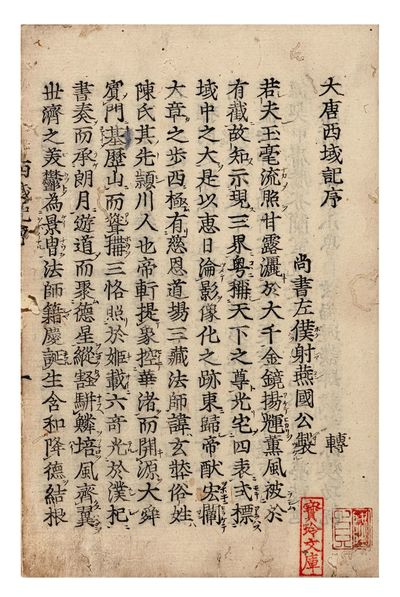 大唐西域記序 轉
尚書左僕射燕國公製
若夫玉毫流照甘露灑於大千金鏡揚輝薰風被於
有截故知示現三界粤稱天下之尊光宅四表式標
域中之大是以惠日淪影像化之跡東歸帝猷宏闡
大章之步西極有慈恩道場三藏法師諱玄奘俗姓
陳氏其先潁川人也帝軒提象控華渚而開源大舜
賓門基歷山而聳構三恪照於姬載六奇光於漢祀
書奏而承朗月遊道而聚德星縱壑駢鱗培風齊翼
世濟之美鬱為景冑法師籍慶誕生含和降德結根
寶玲文庫